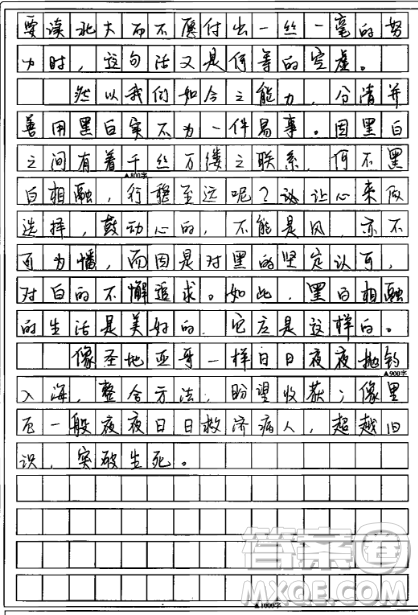 要读北大而不愿付出一丝一毫的努
力时，这句话又是何等的空虚。
然以我们如今之能力，分清并
善用黑白实不为一件易事。因黑白
之间有着千丝万缕之联系，何不黑
▲800字
白相融，行稳至远呢？让心来做
选择，鼓动心的，不能是风，亦不
可为幡，而因是对黑的坚定认可，
对白的不懈追求。如此，黑白相融
的生活是美好的，它应是这样的。
像圣地亚哥一样日日夜夜抛钓
▲900字
入海，整合方法，盼望收获；像里
厄一般夜夜日日救济病人，超越旧
识，突破生死。
答案圈
MXQE.COM
▲1000字